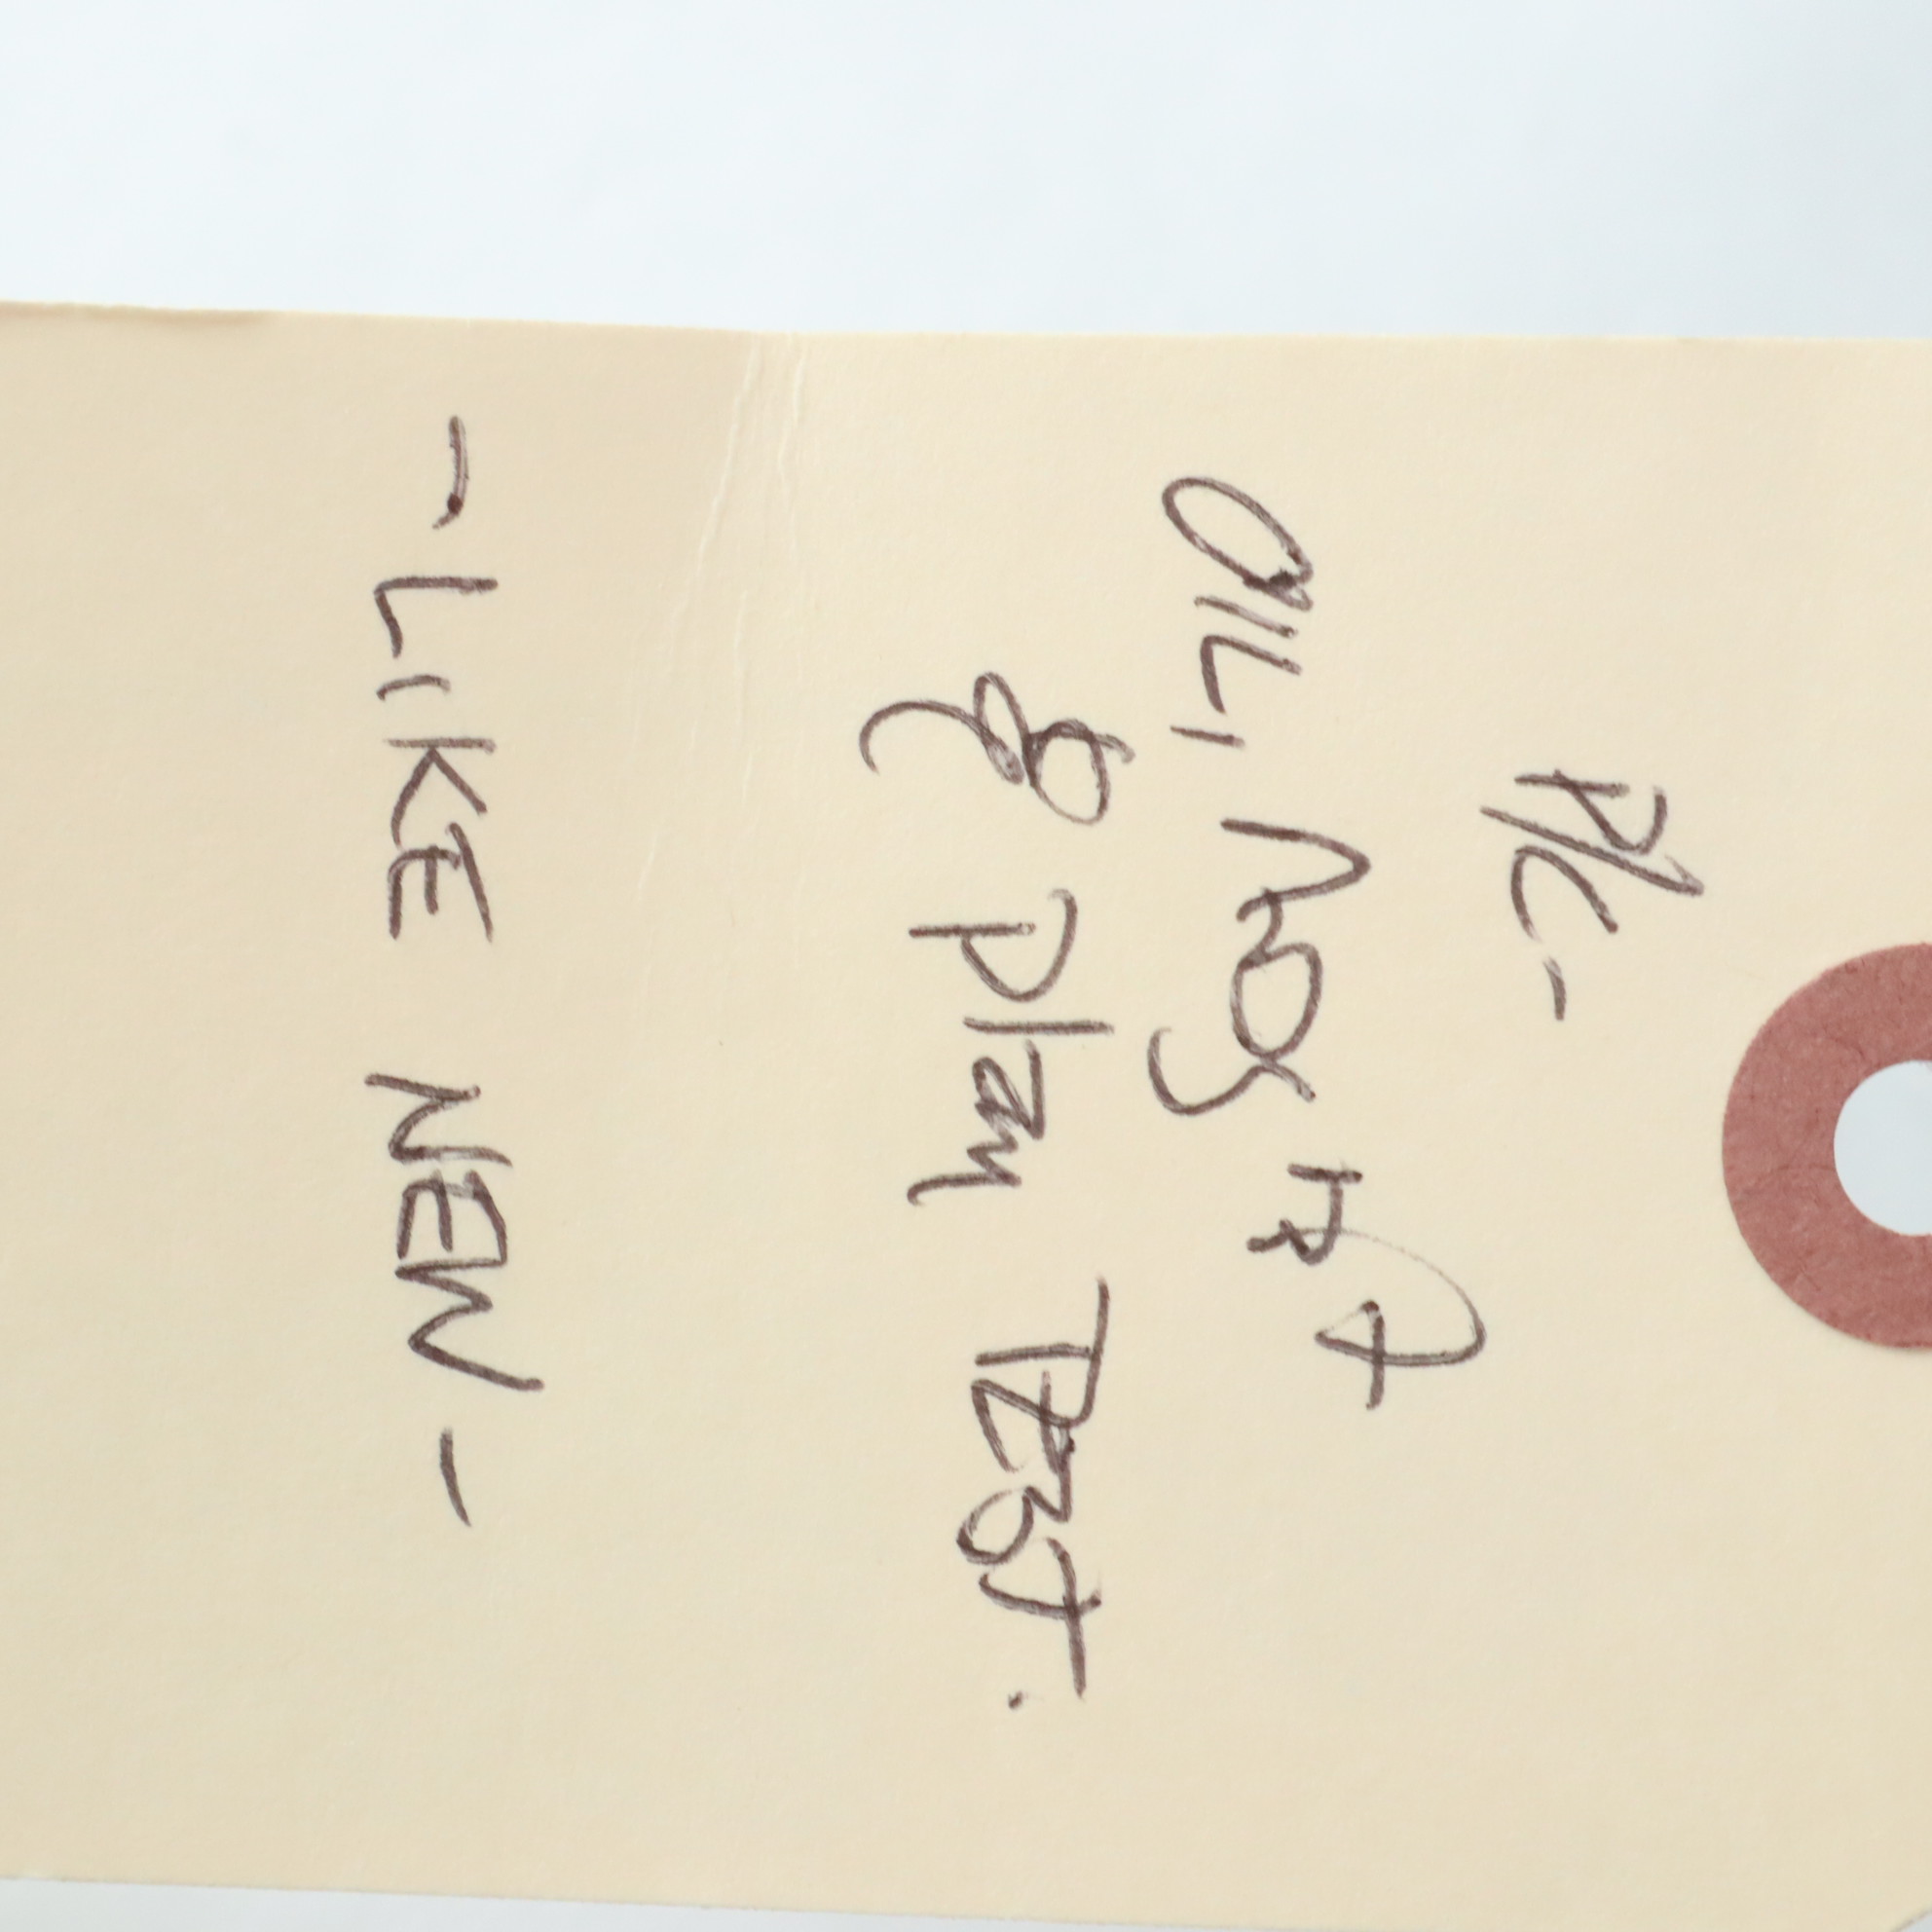 P/C -
OIL,
& Play Test.
- LIKE NEW -